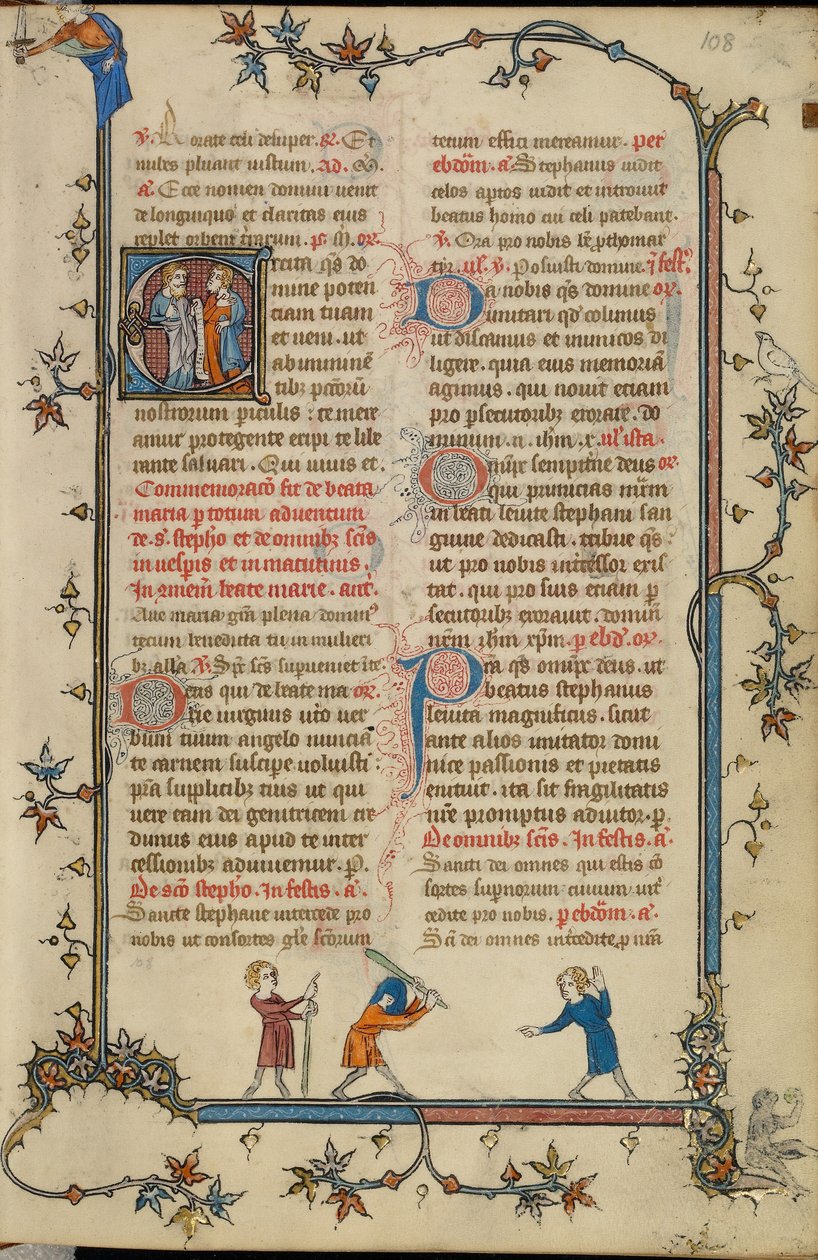 108
v. Rorate celi desuper. R. Et
nubes pluant iustum. Ad. M.
a. Ecce nomen domini uenit
de longuiquo et claritas eius
replet orbem trarum. ps. M. or.
Excita qs do
mine poten
ciam tuam
et ueni. ut
ab iminine
tibz pccoru
nostrorum piculis : te mere
amur protegente eripi te libe
rante saluari. Qui uiuis et.
Commemoraco fit de beata
maria p totum aduentum
de. s. stepho et de omnibz scis
in uespis et in matutinis.
In memi beate marie. ant.
Aue maria gra plena domin9
tecum benedicta tu in mulieri
bz. alla v. Sps scs supueniet i te
Deus qui de beate ma or.
rie uirginis uto uer
bum tuum angelo nuncia
te carnem suscipe uoluisti :
pra supplicibz tuis ut qui
uere eam dei genitricem cre
dimus eius apud te inter
cessionibz adiuuemur. P.
De sco stepho. In festis. a.
Sancte stephane intercede pro
nobis ut consortes gle scorum
108
tecum effici mereamur. per
ebdom. a. Stephanus uidit
celos aptos uidit et introiuit
beatus homo cui celi patebant.
v. Ora pro nobis be prothomar
tyr. ul. v. Posuisti domine. i fest.
Da nobis qs domine or.
imitari qd colimus
ut discamus et inimicos di
ligere. quia eius memoria
agimus. qui nouit etiam
pro psecutoribz exorare. do
minum. n. ihm. x. ul ista.
Omips sempitne deus or.
qui primicias mrm
in beati leuite stephani san
guine dedicasti. tribue qs.
ut pro nobis intcessor exis
tat. qui pro suis etiam p
secutoribz exorauit. dominu
nrm ihm xpm. p ebd. or.
Pra qs omips deus. ut
beatus stephanus
leuita magnificus. sicut
ante alios imitator domi
nice passionis et pietatis
enituit. ita sit fragilitatis
nre promptus adiutor. p.
De omnibz scis. In festis. a.
Sancti dei omnes qui estis co
sortes supnorum ciuium int
cedite pro nobis. p ebdom. a.
Sci dei omnes intcedite p nra